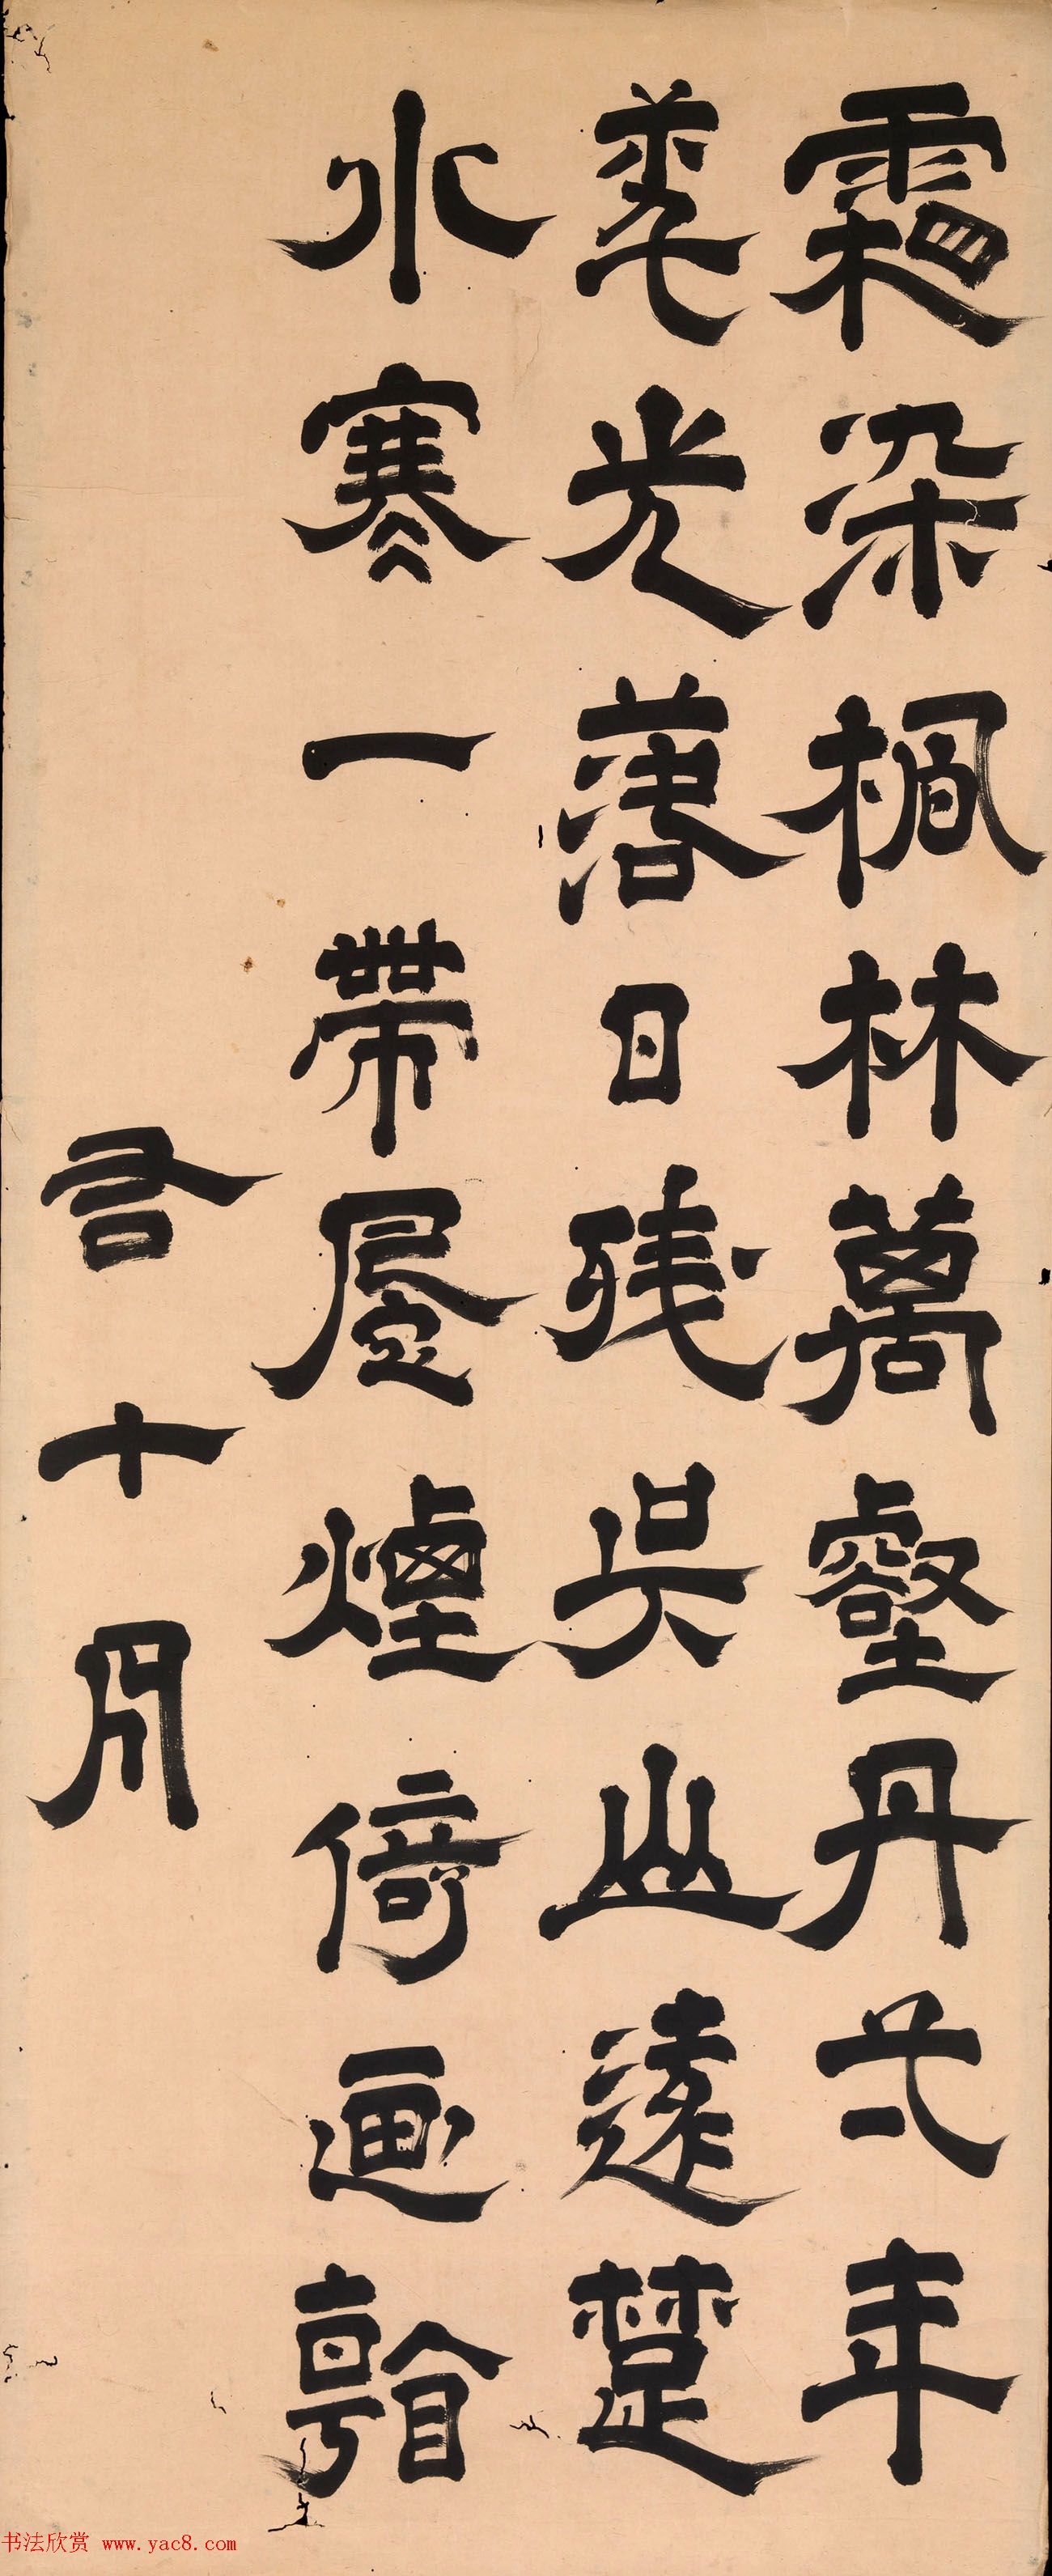 霜染楓林萬壑丹年
華光落日残吳山遠楚
水寒一帶層煙倚画看
右十月
书法欣赏 www.yac8.com